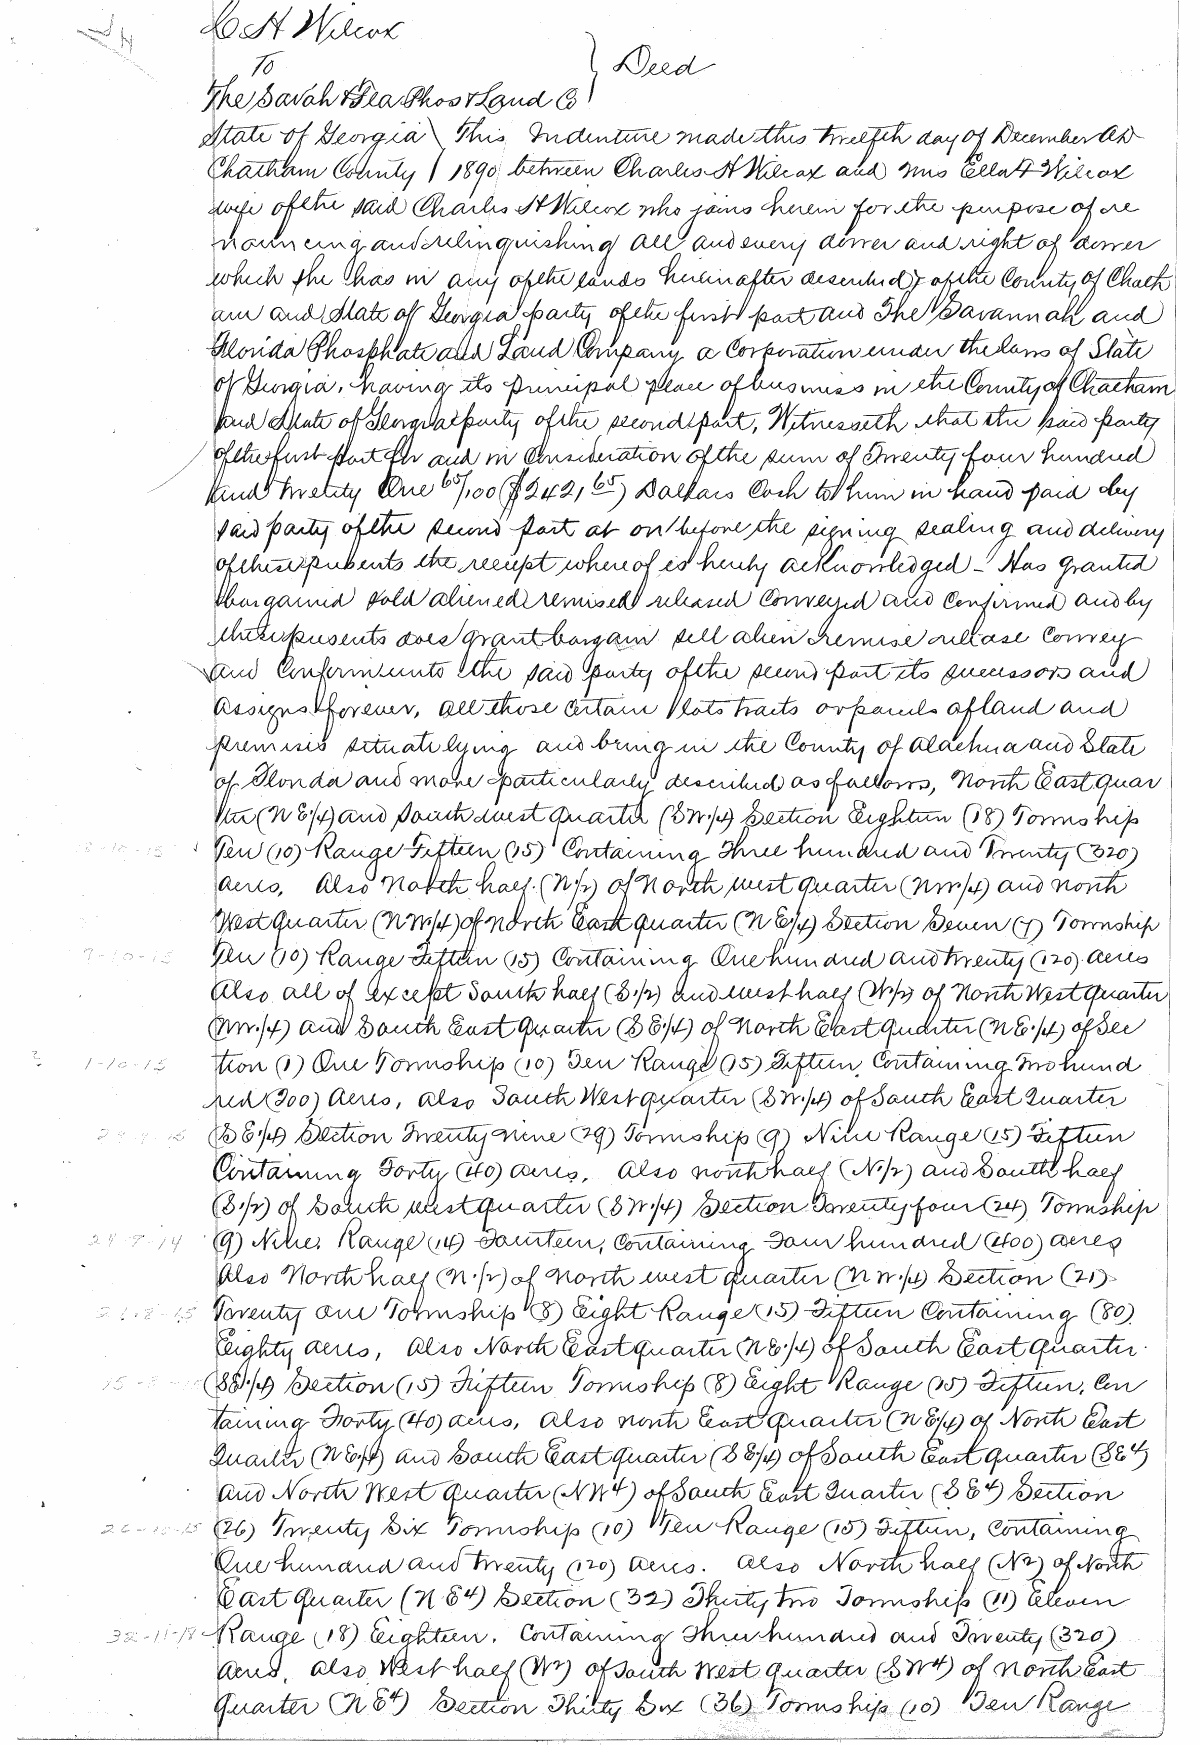 C H Wilcox
To } Deed
The Savah & Fla Phos & Land Co
State of Georgia \ This Indenture made this twelfth day of December AD
Chatham County / 1890 between Charles H Wilcox and Mrs Ella F Wilcox
wife of the said Charles H Wilcox who joins herein for the purpose of re
nouncing and relinquishing all and every dower and right of dower
which she has in any of the lands hereinafter described) of the County of Chath
am and State of Georgia party of the first part and The Savannah and
Florida Phosphate and Land Company a Corporation under the laws of State
of Georgia, having its principal place of business in the County of Chatham
and State of Georgia party of the second part, Witnesseth that the said party
of the first part for and in Consideration of the sum of Twenty four hundred
and twenty One 65/100 ($242,1 65) Dollars Cash to him in hand paid by
said party of the second part at or before the signing sealing and delivery
of these presents the receipt where of is hereby acknowledged – Has granted
bargained sold aliened remised released Conveyed and Confirmed and by
these presents does grant bargain sell alien remise release Convey
and Confirm unto the said party of the second part its successors and
assigns forever, all those certain lots tracts or parcels of land and
premises situate lying and being in the County of Alachua and State
of Florida and more particularly described as follows, North East quar
ter (N E.1/4) and South west quarter (S W.1/4) Section Eighteen (18) Township
18-10-15 Ten (10) Range Fifteen (15) Containing Three hundred and Twenty (320)
acres, Also North half (N.1/2) of North west quarter (NW.1/4) and north
West quarter (NW.1/4) of North East quarter (N E.1/4) Section Seven (7) Township
7-10-15 Ten (10) Range Fifteen (15) Containing One hundred and twenty (120) acres
Also all of except South half (S.1/2) and west half (W.1/2) of North West quarter
(NW.1/4) and South East Quarter (S E.1/4) of North East quarter (N E.1/4) of Sec
? 1-10-15 tion (1) One Township (10) Ten Range (15) Fifteen, Containing Two hund
red (200) Acres, also South West quarter (S W.1/4) of South East Quarter
29-9-15 (S E.1/4) Section Twenty nine (29) Township (9) Nine Range (15) Fifteen
Containing Forty (40) acres, Also north half (N.1/2) and South half
(S.1/2) of South west quarter (S W.1/4) Section Twenty four (24) Township
24-9-14 (9) Nine, Range (14) Fourteen, Containing Four hundred (400) acres
Also North half (N.1/2) of North west quarter (N W.1/4) Section (21)
21-8-15 Twenty one Township (8) Eight Range (15) Fifteen Containing (80)
Eighty acres, Also North East quarter (N E.1/4) of South East quarter
15-8-15 (SE.1/4) Section (15) Fifteen Township (8) Eight Range (15) Fifteen, Con
taining Forty (40) acres, Also north East quarter (N E.1/4) of North East
Quarter (N E.1/4) and South East quarter (S E.1/4) of South East quarter (SE4)
and North West quarter (NW4) of South East Quarter (S E4) Section
26-10-15 (26) Twenty Six Township (10) Ten Range (15) Fifteen, Containing
One hundred and twenty (120) acres. Also North half (N2) of North
East quarter (N E4) Section (32) Thirty two Township (11) Eleven
32-11-18 Range (18) Eighteen. Containing Three hundred and Twenty (320)
acres, also West half (W2) of South West quarter (S W4) of North East
quarter (N E4) Section Thirty Six (36) Township (10) Ten Range